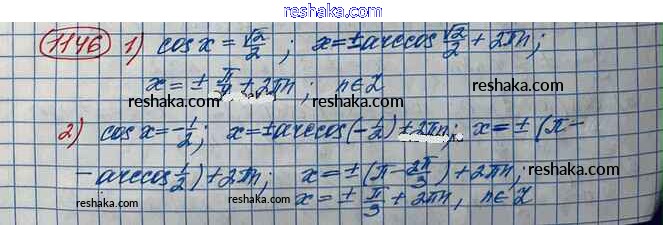 reshaka.com
1146 1) cos x = √2/2 ; x = ± arccos √2/2 + 2πn ;
x = ± π/4 + 2πn ; n ∈ Z
reshaka.com
reshaka.com
2) cos x = -1/2 ; x = ± arccos(-1/2) + 2πn ; x = ± (π -
- arccos 1/2) + 2πn ; x = ± (π - 2π/3) + 2πn ;
x = ± π/3 + 2πn, n ∈ Z
reshaka.com
reshaka.com